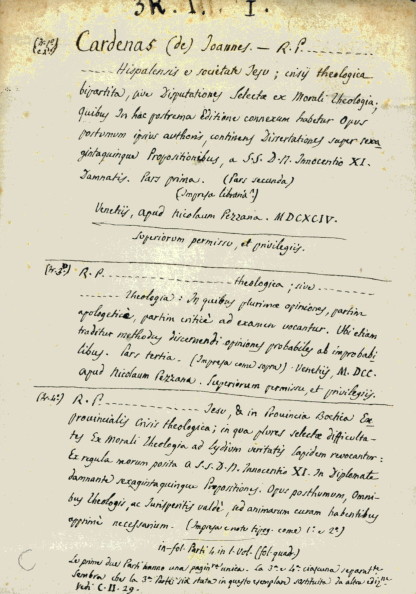 3R. I. I.
Cardenas (de) Joannes. — R. P. .......
....... Hispalensis e societate Jesu ; crisis theologica
bipartita, sive Disputationes Selectae ex Morali Theologia,
Quibus In hac postrema Editione connexum habetur Opus
postumum ipsius authoris, continens Dissertationes super sexa
gintaquinque Propositionibus, a S.S. D. N. Innocentio XI.
Damnatis. Pars prima. (Pars secunda)
(Impresa libraria)
Venetijs, apud Nicolaum Pezzana. MDCXCIV.
Superiorum permissu, et privilegiis.
R. P. .......... theologica ; sive .......
....... theologia : In quibus plurimae opiniones, partim
apologeticè, partim criticè ad examen vocantur. Ubi etiam
traditur methodus discernendi opiniones probabiles ab improbabi
libus. Pars tertia. (Impresa come sopra) . Venetiis, M. DCC.
apud Nicolaum Pezzana . Superiorum permissu, et privilegiis.
R. P. .......... Jesu, & in Provincia Ex
provincialis Crisis theologica ; in qua plures selectae difficulta-
tes Ex Morali Theologia ad lydium veritatis lapidem revocantur :
Ex regula morum posita a S.S. D. N. Innocentio XI. In Diplomate
damnante sexagintaquinque Propositiones. Opus posthumum, Omni-
bus Theologis, ac Jurisperitis valdè, ad animarum curam habentibus
apprimè necessarium. (Impresa e note tipog. come 1ª e 2ª)
in-fol. Parti 4 in t. Vol. (fol. quad.)
Le prime due Parti hanno una pagin.ne unica. La 3ª e 4ª ciascuna separata.
Sembra che la 3ª Parte sia stata in questo esemplare sostituita da altra ediz.ne
Vedi C-II-29.